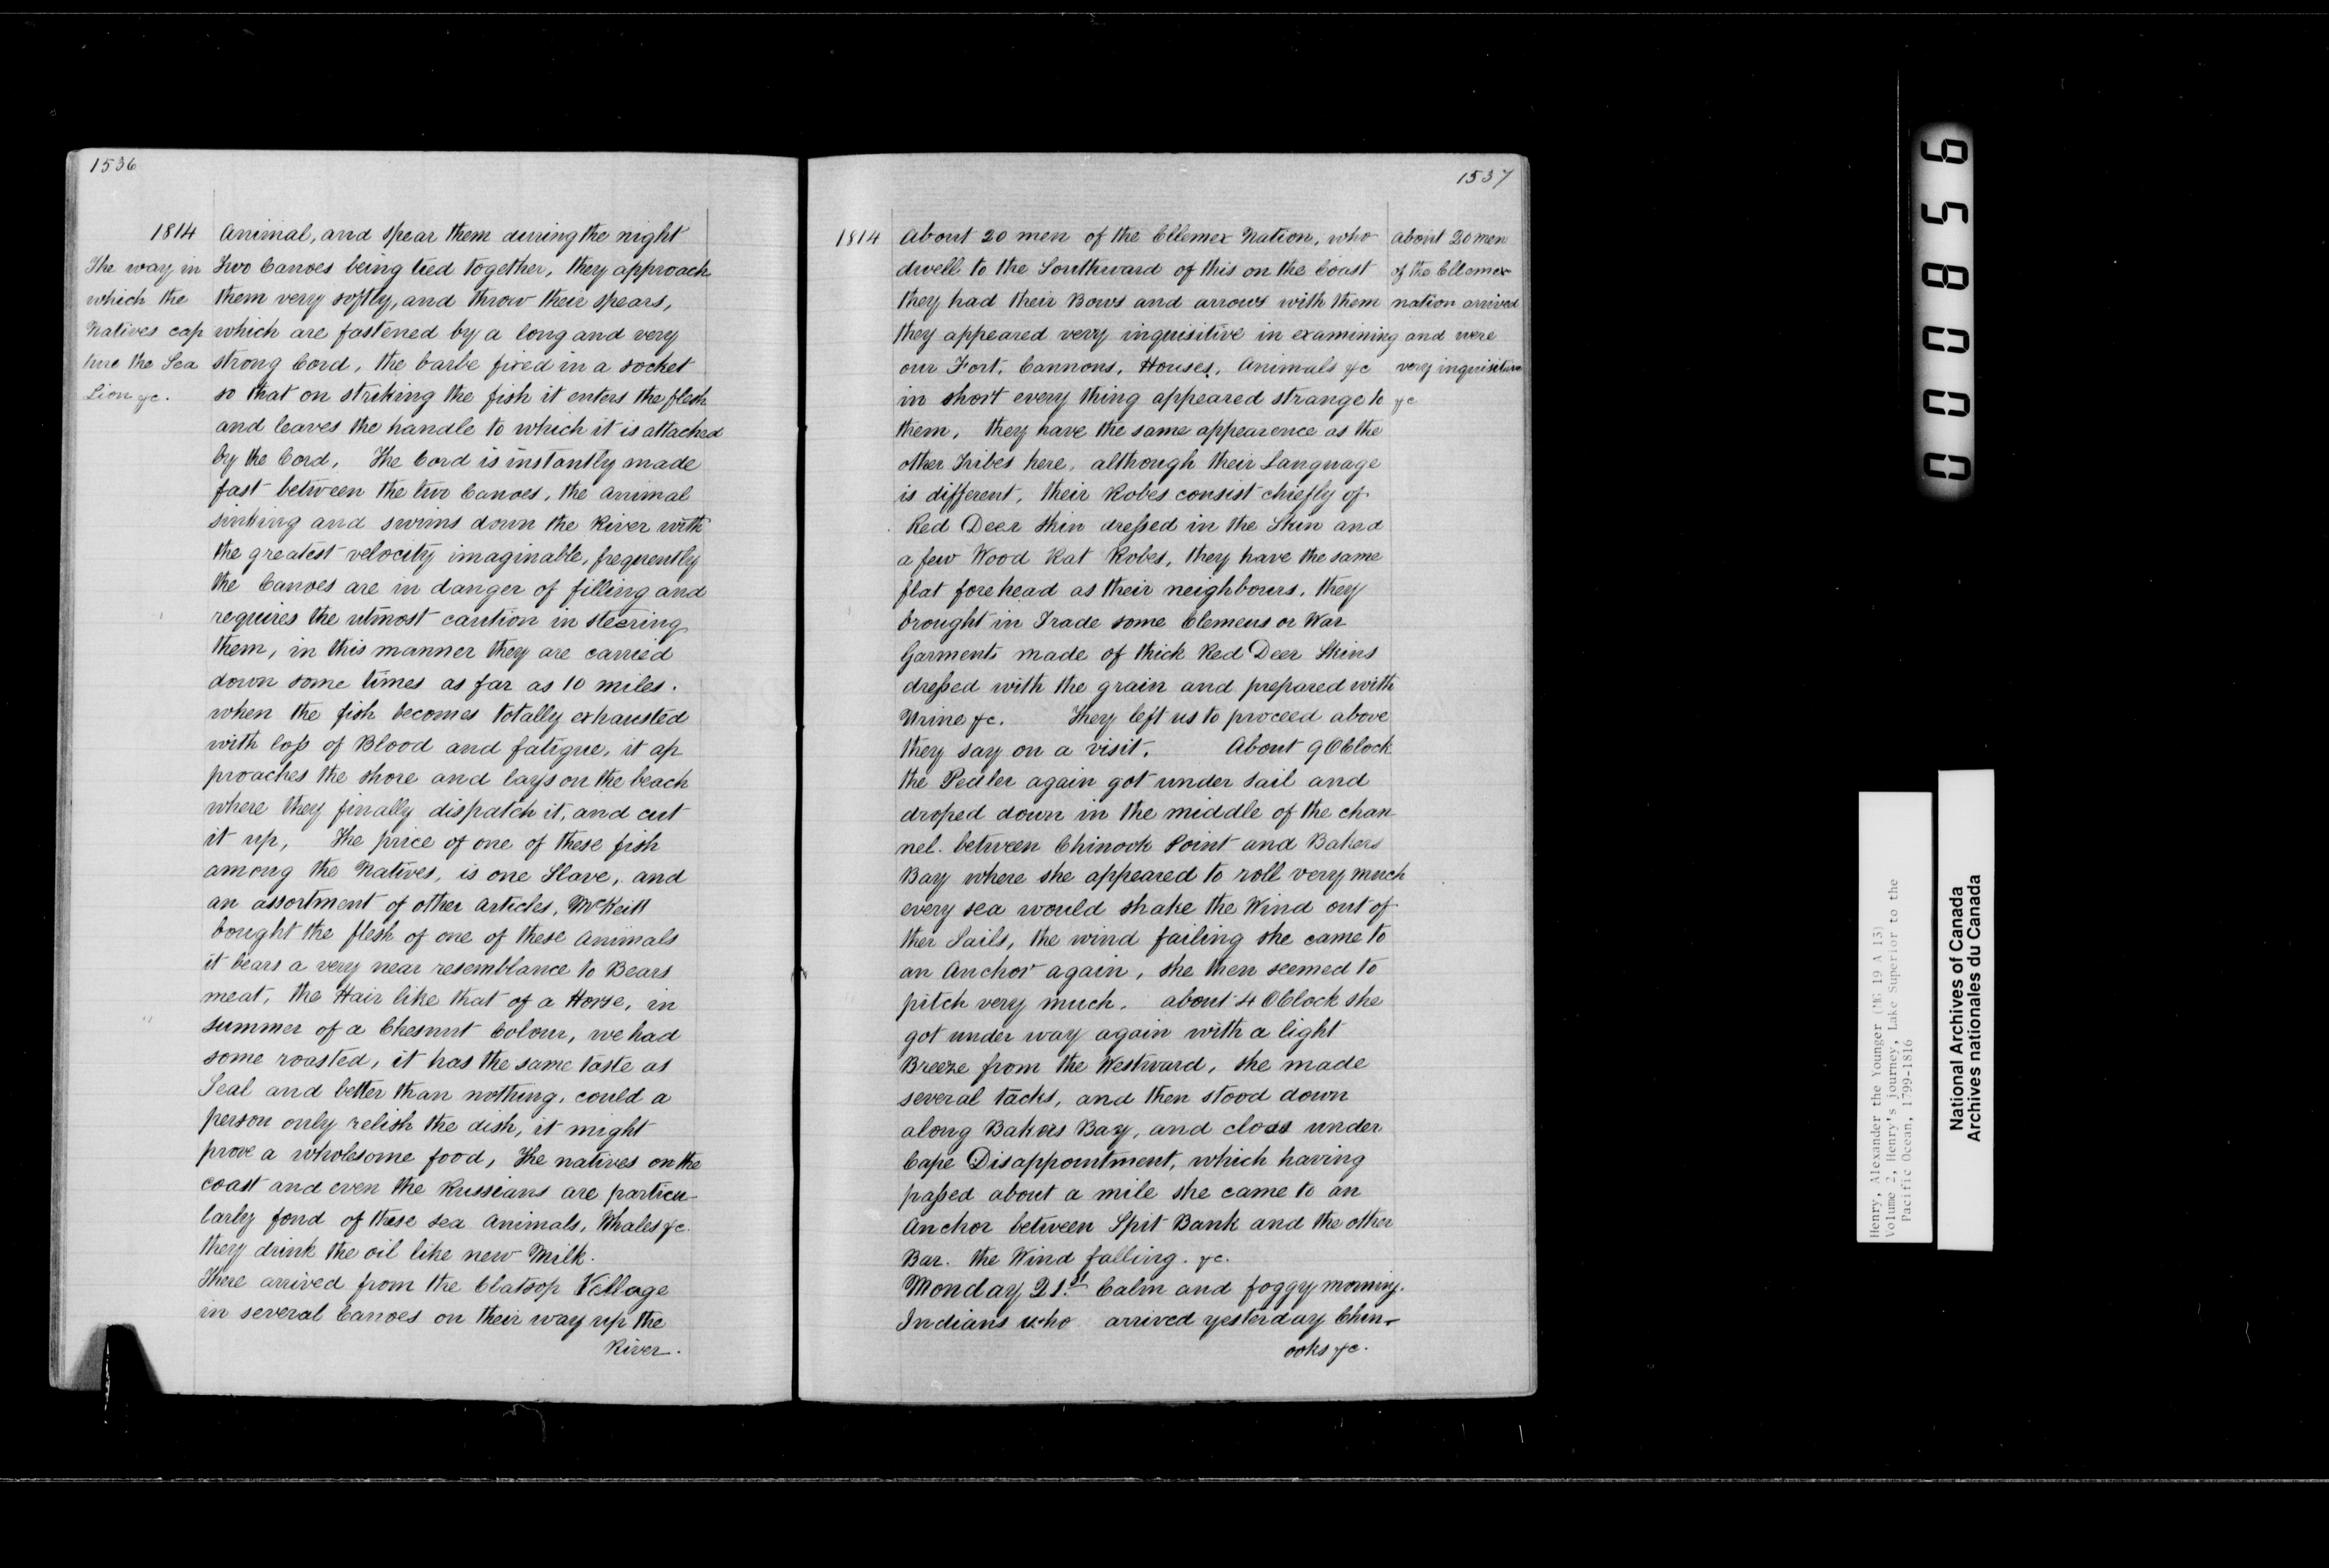 1536
1814
The way in
which the
Natives cap
ture the Sea
Lion &c.
Animal, and spear them during the night
Two Canoes being tied together, they approach
them very softly, and throw their spears,
which are fastened by a long and very
strong Cord, the barbe fixed in a socket
so that on striking the fish it enters the flesh
and leaves the handle to which it is attached
by the Cord, The Cord is instantly made
fast between the two Canoes, the Animal
sinking and swims down the River with
the greatest velocity imaginable, frequently
the Canoes are in danger of filling and
requires the utmost caution in steering
them, in this manner they are carried
down some times as far as 10 miles.
when the fish becomes totally exhausted
with loss of Blood and fatigue, it ap
proaches the shore and lays on the beach
where they finally dispatch it, and cut
it up, The price of one of these fish
among the Natives, is one Slave, and
an assortment of other articles, McKeitt
bought the flesh of one of these animals
it bears a very near resemblance to Bears
meat, the Hair like that of a Horse, in
summer of a Chesnut Colour, we had
some roasted, it has the same taste as
Seal and better than nothing, could a
person only relish the dish, it might
prove a wholesome food, The natives on the
coast and even the Russians are particu-
larly fond of these sea Animals, Whales &c.
they drink the oil like new Milk.
There arrived from the Clatsop Village
in several Canoes on their way up the
River.
1537
1814
About 20 men of the Ellemex Nation, who
dwell to the Southward of this on the Coast
they had their Bows and arrows with them
they appeared very inquisitive in examining
our Fort, Cannons, Houses, Animals &c
in short every thing appeared strange to
them, they have the same appearence as the
other Tribes here, although their Language
is different, their Robes consist chiefly of
Red Deer Skin dressed in the Skin and
a few Wood Rat Robes, they have the same
flat forehead as their neighbours, they
brought in Trade some Clemens or War
Garments made of thick Red Deer Skins
dressed with the grain and prepared with
Urine &c. They left us to proceed above
they say on a visit, About 9 OClock
the Pedler again got under sail and
droped down in the middle of the chan-
nel. between Chinook Point and Bakers
Bay where she appeared to roll very much
every sea would shake the Wind out of
ther Sails, the wind failing she came to
an Anchor again, she then seemed to
pitch very much. about 4 OClock she
got under way again with a light
Breeze from the Westward, she made
several tacks, and then stood down
along Bakers Bay, and cloas under
Cape Disappointment, which having
passed about a mile she came to an
Anchor between Spit Bank and the other
Bar. the Wind falling. &c.
Monday 21st Calm and foggy morning.
Indians who arrived yesterday Chin-
ooks &c.
about 20 men
of the Ellemex
nation arrived
and were
very inquisitive
&c
000856
Henry, Alexander the Younger (MG 19 A 13)
Volume 2, Henry's journey, Lake Superior to the
Pacific Ocean, 1799-1816
National Archives of Canada
Archives nationales du Canada